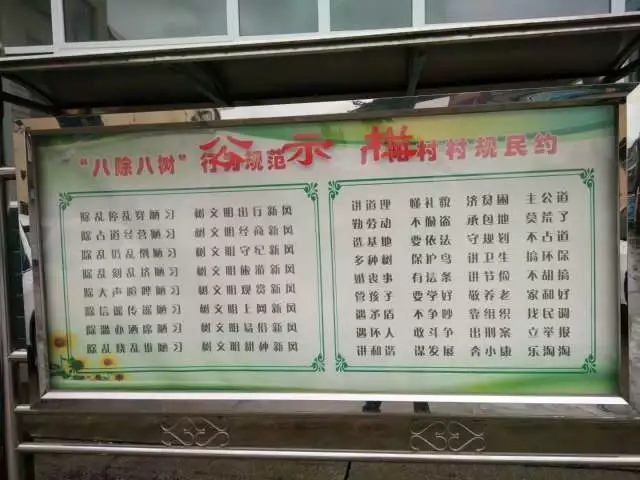 公示栏
“八除八树”行为规范
除乱停乱穿陋习 树文明出行新风
除占道经营陋习 树文明经商新风
除乱扔乱倒陋习 树文明守纪新风
除乱刻乱涂陋习 树文明旅游新风
除大声喧哗陋习 树文明观赏新风
除信谣传谣陋习 树文明上网新风
除滥办酒席陋习 树文明易俗新风
除乱烧乱 陋习 树文明 种新风
村村规民约
讲道理 懂礼貌 济贫困 主公道
勤劳动 不偷盗 承包地 莫荒了
选基地 要依法 守规划 不占道
多种树 保护鸟 讲卫生 搞环保
婚丧事 有法条 讲节俭 不胡搞
管孩子 要学好 敬养老 家和好
遇矛盾 不争吵 靠组织 找民调
遇坏人 敢斗争 出刑案 立举报
讲和谐 谋发展 奔小康 乐淘淘